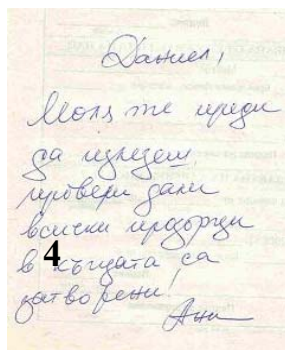 Даниел,
Моля те преди
да излезеш
провери дали
всички прозорци
в къщата са
затворени!
Ани
4